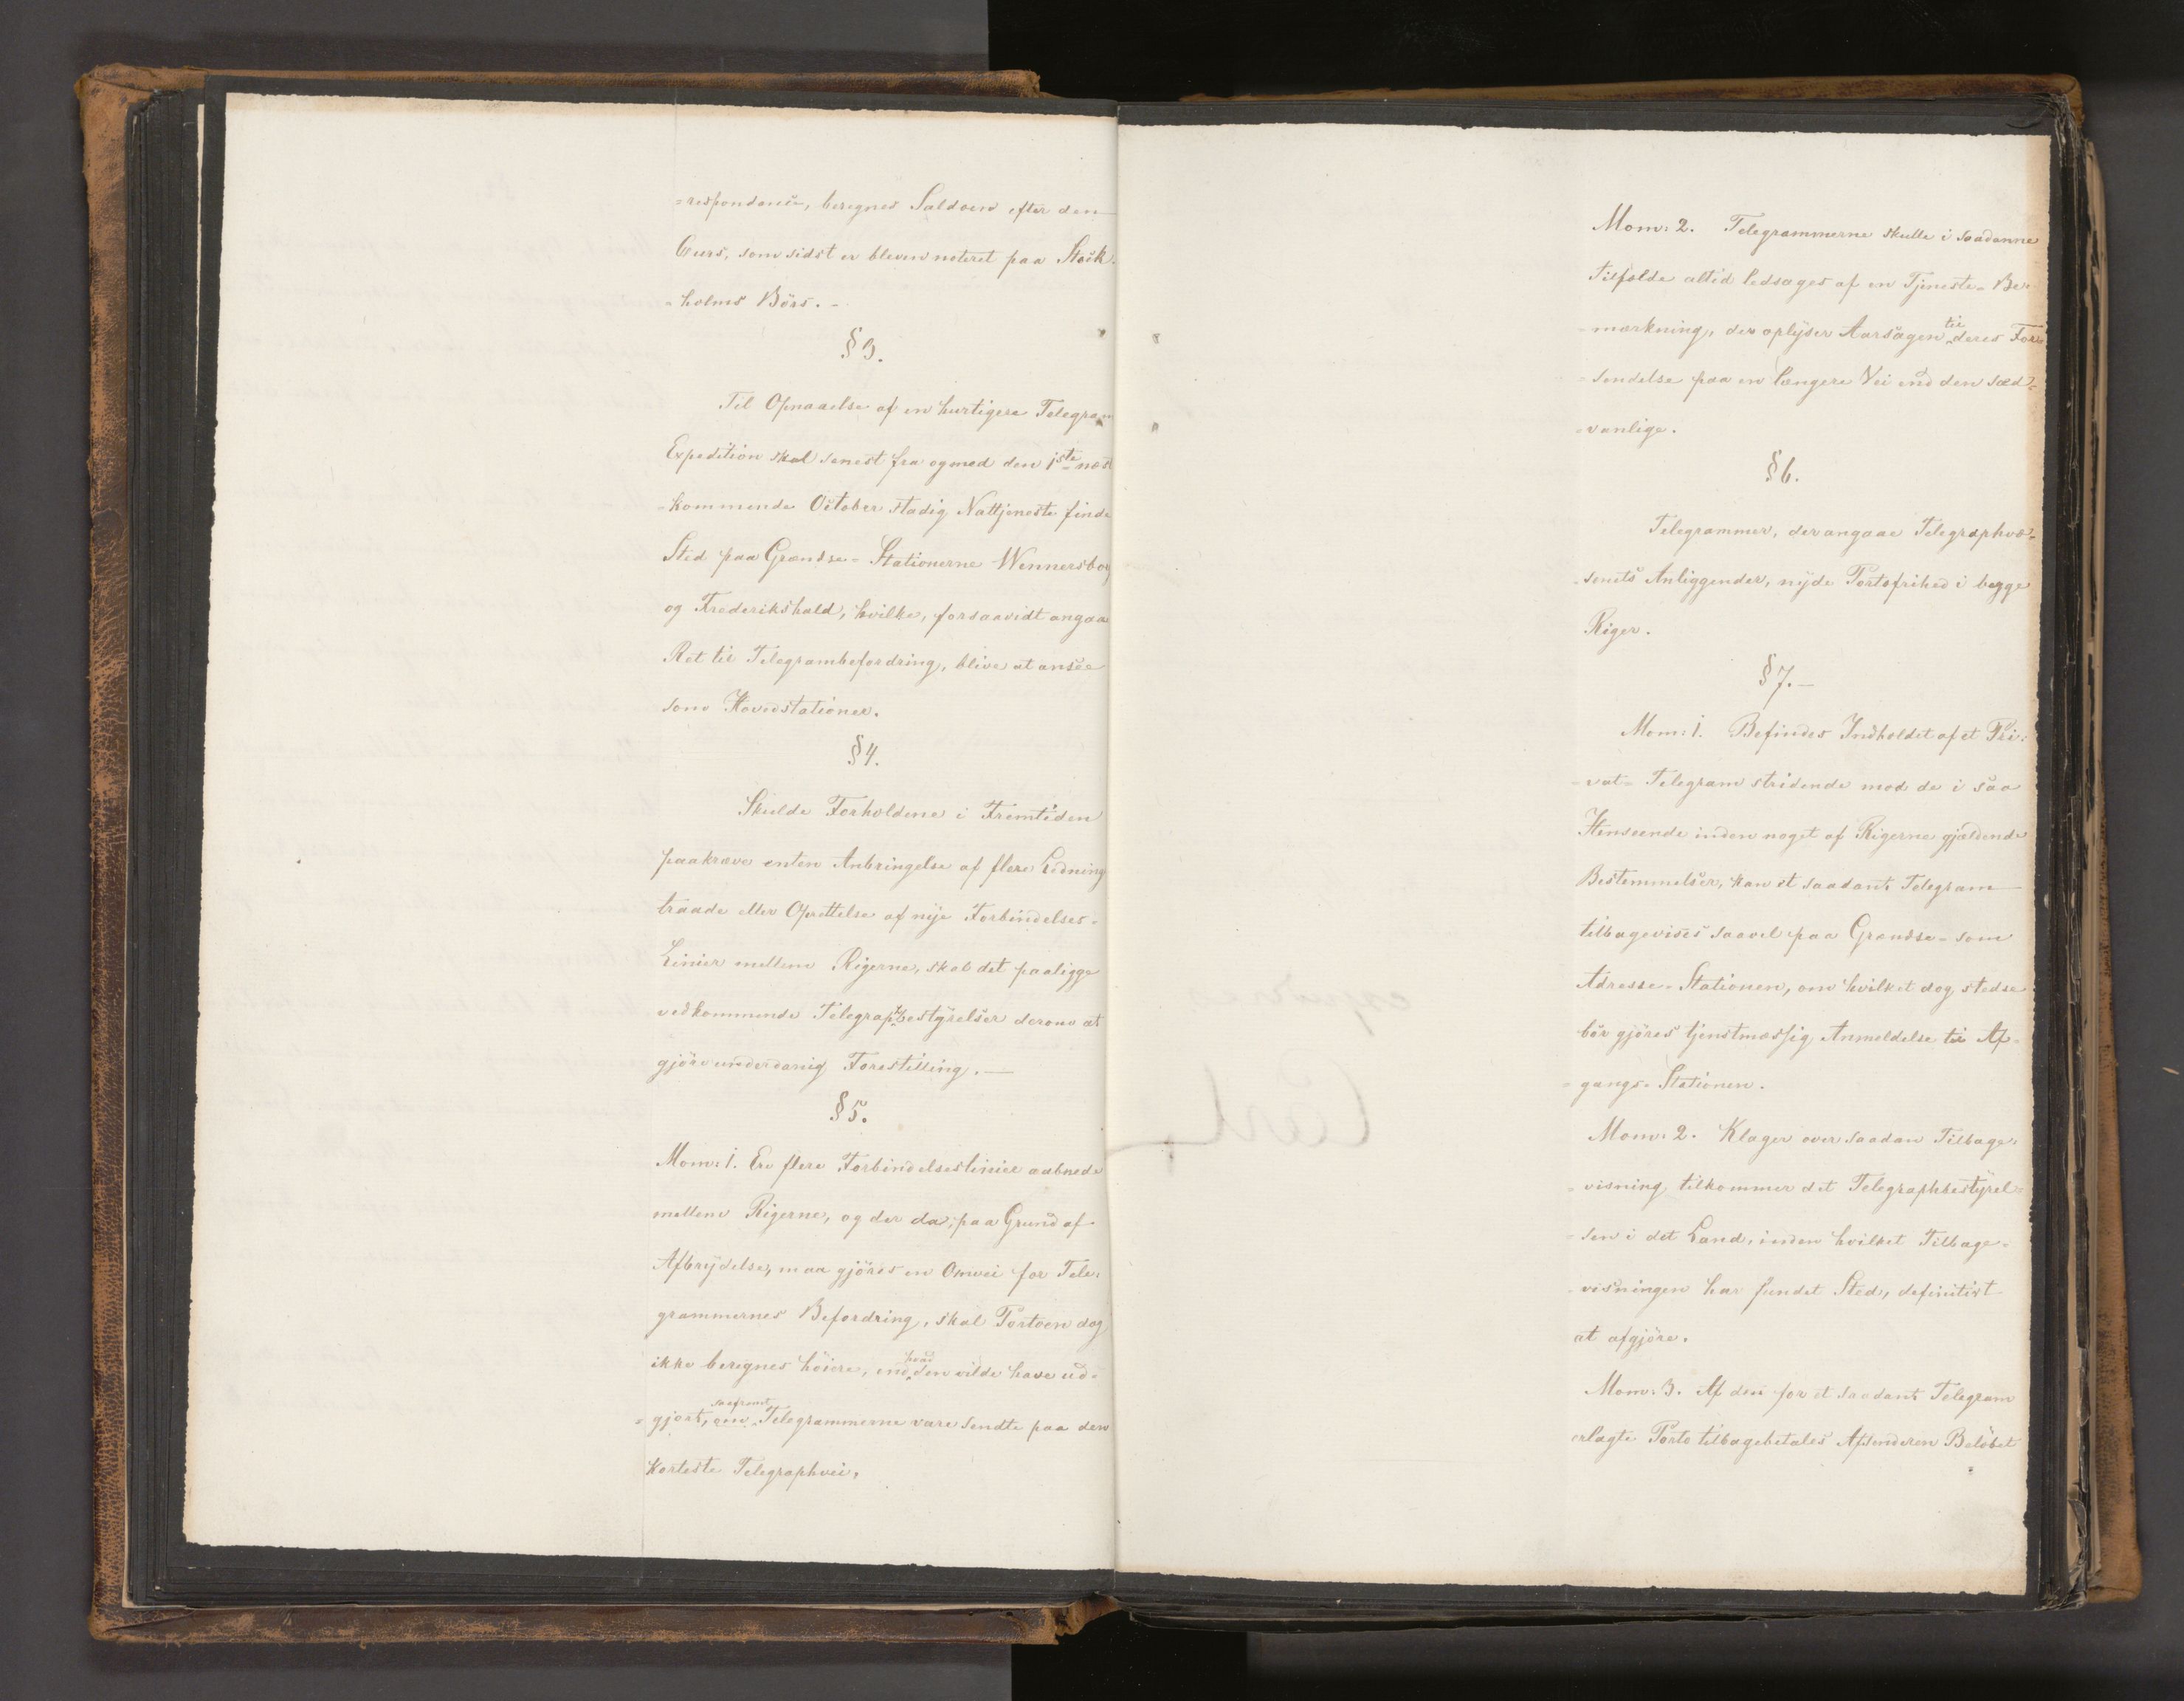 =respondense, beregnes Saldoen efter den
Cours, som sidst er bleven noteret paa Stock-
=holms Börs.-
§ 3.
Til Opnaaelse af en hurtigere Telegram
Expedition skal senest fra og med den 1ste næst
=kommende October stadig Nattjeneste finde
Sted paa Grændse=Stationerne Wennersborg
og Frederikshald, hvilke, forsaavidt angaar
Ret til Telegrambefordring, blive at ansee
som Hovedstationer.
§ 4.
Skulde Forholdene i Fremtiden
paakræve enten Anbringelse af flere Lednings
traade eller Oprettelse af nye Forbindelses=
Linier mellem Rigerne, skal det paaligge
vedkommende Telegraphbestyrelser derom at
gjöre underdanig Forestilling.-
§ 5.
Mom: 1. Ere flere Forbindelseslinier aabnede
mellem Rigerne, og der da, paa Grund af
Afbrydelse, maa gjöres en Omvei for Tele=
grammernes Befordring, skal Portoen dog
ikke beregnes höiere, end hvad den vilde have ud=
=gjort, om saafremt Telegrammerne vare sendte paa den
korteste Telegraphvei.
Mom: 2. Telegrammerne skulle i saadanne
Tilfælde altid ledsages af en Tjeneste=Be=
=mærkning, der oplyser Aarsagen til deres For=
=sendelse paa en længere Vei end den sæd=
=vanlige.
§ 6.
Telegrammer, der angaae Telegraphvæ=
=senets Anliggender, nyde Portofrihed i begge
Riger.
§ 7.-
Mom: 1. Befindes Indholdet af et Pri=
=vat=Telegram stridende mod de i saa
Henseende inden noget af Rigerne gjældende
Bestemmelser, kan et saadant Telegram
tilbagevises saavel paa Grændse= som
Adresse=Stationen, om hvilket dog stedse
bör gjöres tjenstmæssig Anmeldelse til Af=
=gangs=Stationen.
Mom: 2. Klager over saadan Tilbage=
=visning tilkommer det Telegraphbestyrel=
=sen i det Land, inden hvilket Tilbage=
=visningen har fundet Sted, definitivt
at afgjöre.
Mom: 3. Af den for et saadant Telegram
erlagte Porto tilbagebetales Afsenderen Belöbet